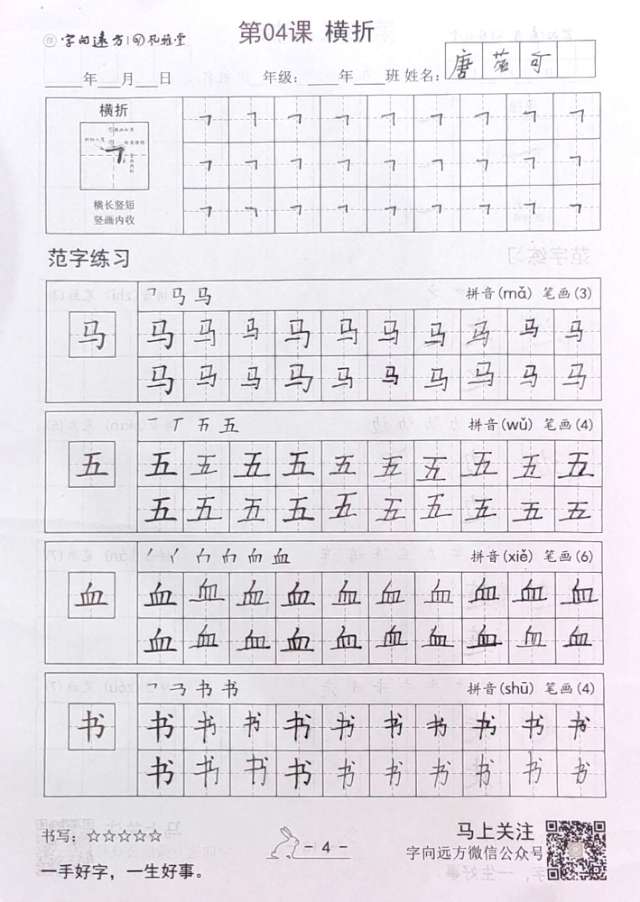 字向远方 风雅堂
第04课 横折
____年___月___日 年级：____年___班 姓名：唐蕊可
横折
横长竖短
竖画内收
𠃍 𠃍 𠃍 𠃍 𠃍 𠃍 𠃍 𠃍 𠃍
𠃍 𠃍 𠃍 𠃍 𠃍 𠃍 𠃍 𠃍 𠃍
𠃍 𠃍 𠃍 𠃍 𠃍 𠃍 𠃍 𠃍 𠃍
范字练习
马 拼音(mǎ) 笔画(3)
马
马 马 马 马 马 马 马 马 马 马
马 马 马 马 马 马 马 马 马 马
五 拼音(wǔ) 笔画(4)
五
五 五 五 五 五 五 五 五 五 五
五 五 五 五 五 五 五 五 五 五
血 拼音(xiě) 笔画(6)
血
血 血 血 血 血 血 血 血 血 血
血 血 血 血 血 血 血 血 血 血
书 书 拼音(shū) 笔画(4)
书
书 书 书 书 书 书 书 书 书 书
书 书 书 书 书 书 书 书 书 书
书写：☆☆☆☆☆
一手好字，一生好事。
- 4 -
马上关注
字向远方微信公众号